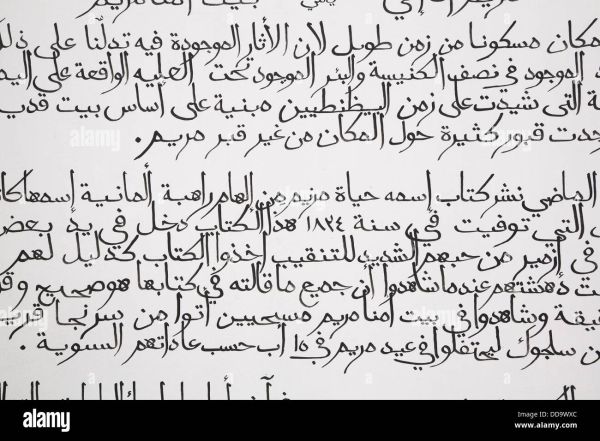 بيت أمنا مريم
مكان مسكونا من زمن طويل لأن الأثار الموجودة فيه تدلنا على ذلك
الموجود في نصف الكنيسة والبئر الموجود تحت العليه الواقعة على اليم
ة التي شيدت على زمن البيظنطيين مبنية على أساس بيت قدي
جدت قبور كثيرة حول المكان من غير قبر مريم .
الماضي نشر كتاب إسمه حياة مريم من إلهام راهبة ألمانية إسمها كا
التي توفيت في سنة ١٨٢٤ هذا الكتاب دخل في يد بعض
في أزمير من حبهم الشديد للتنقيب أخذوا الكتاب كدليل لهم
ت دهشتهم عندما شاهدوا أن جميع ما قالته في كتابها هو صحيح وق
يقة وشاهدوا في بيت أمنا مريم مسيحيين أتوا من سرنجا قري
ن سلجوك ليحتفلوا في عيد مريم في ١٥ آب حسب عاداتهم السنوية .
alamy
alamy stock photo
DD9WXC